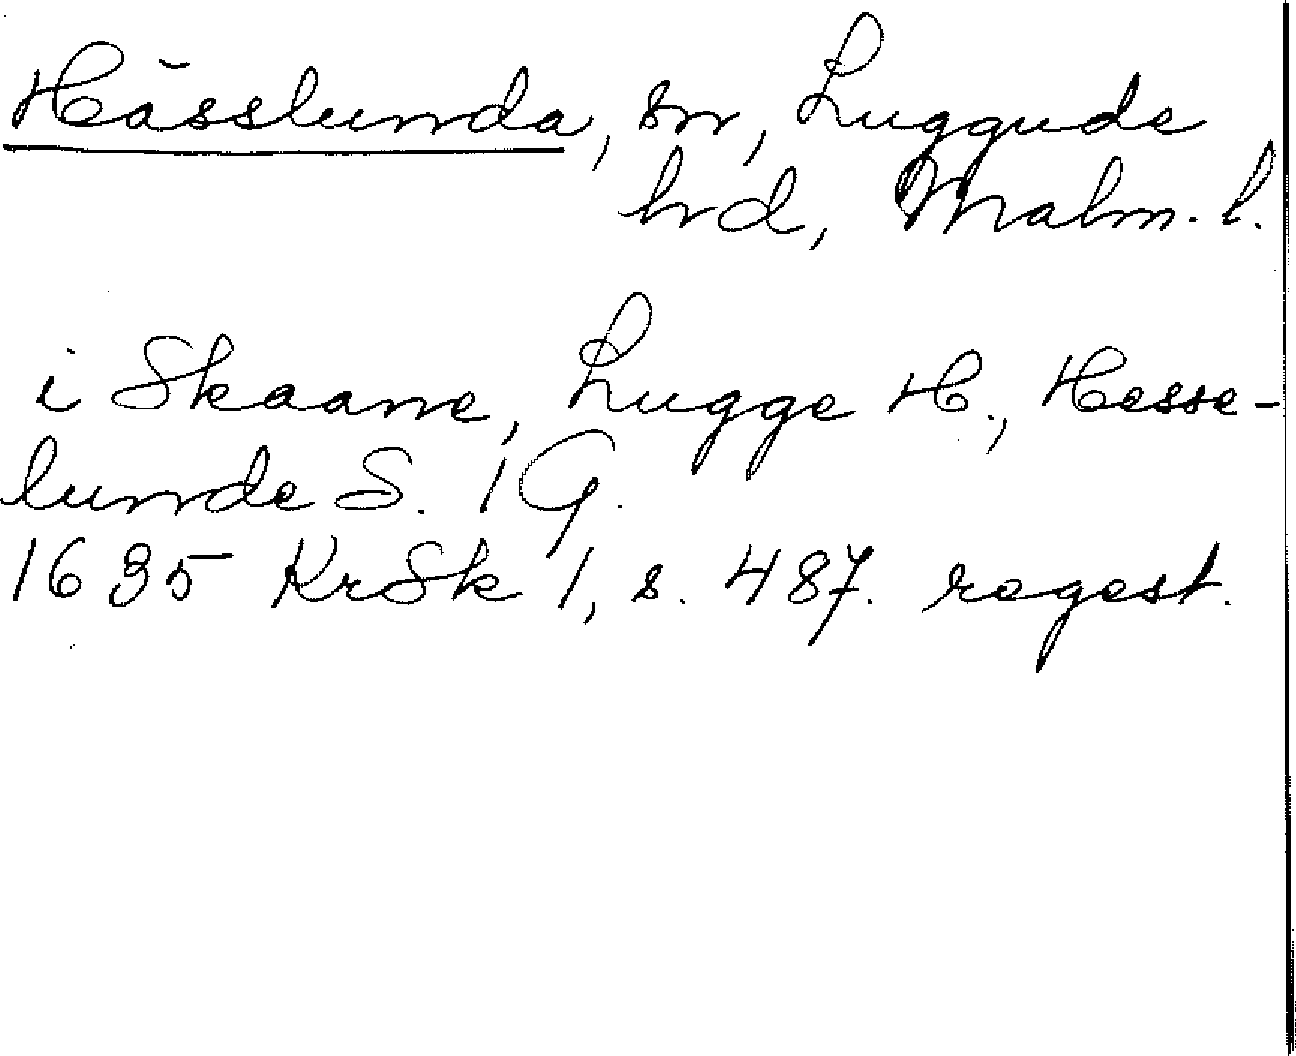 Hässlunda, sn, Luggude
hd, Malm. l.
i Skaane, Lugge H., Hesse-
lunde S. 1 G.
1635 KrSk 1, s. 487. regest.